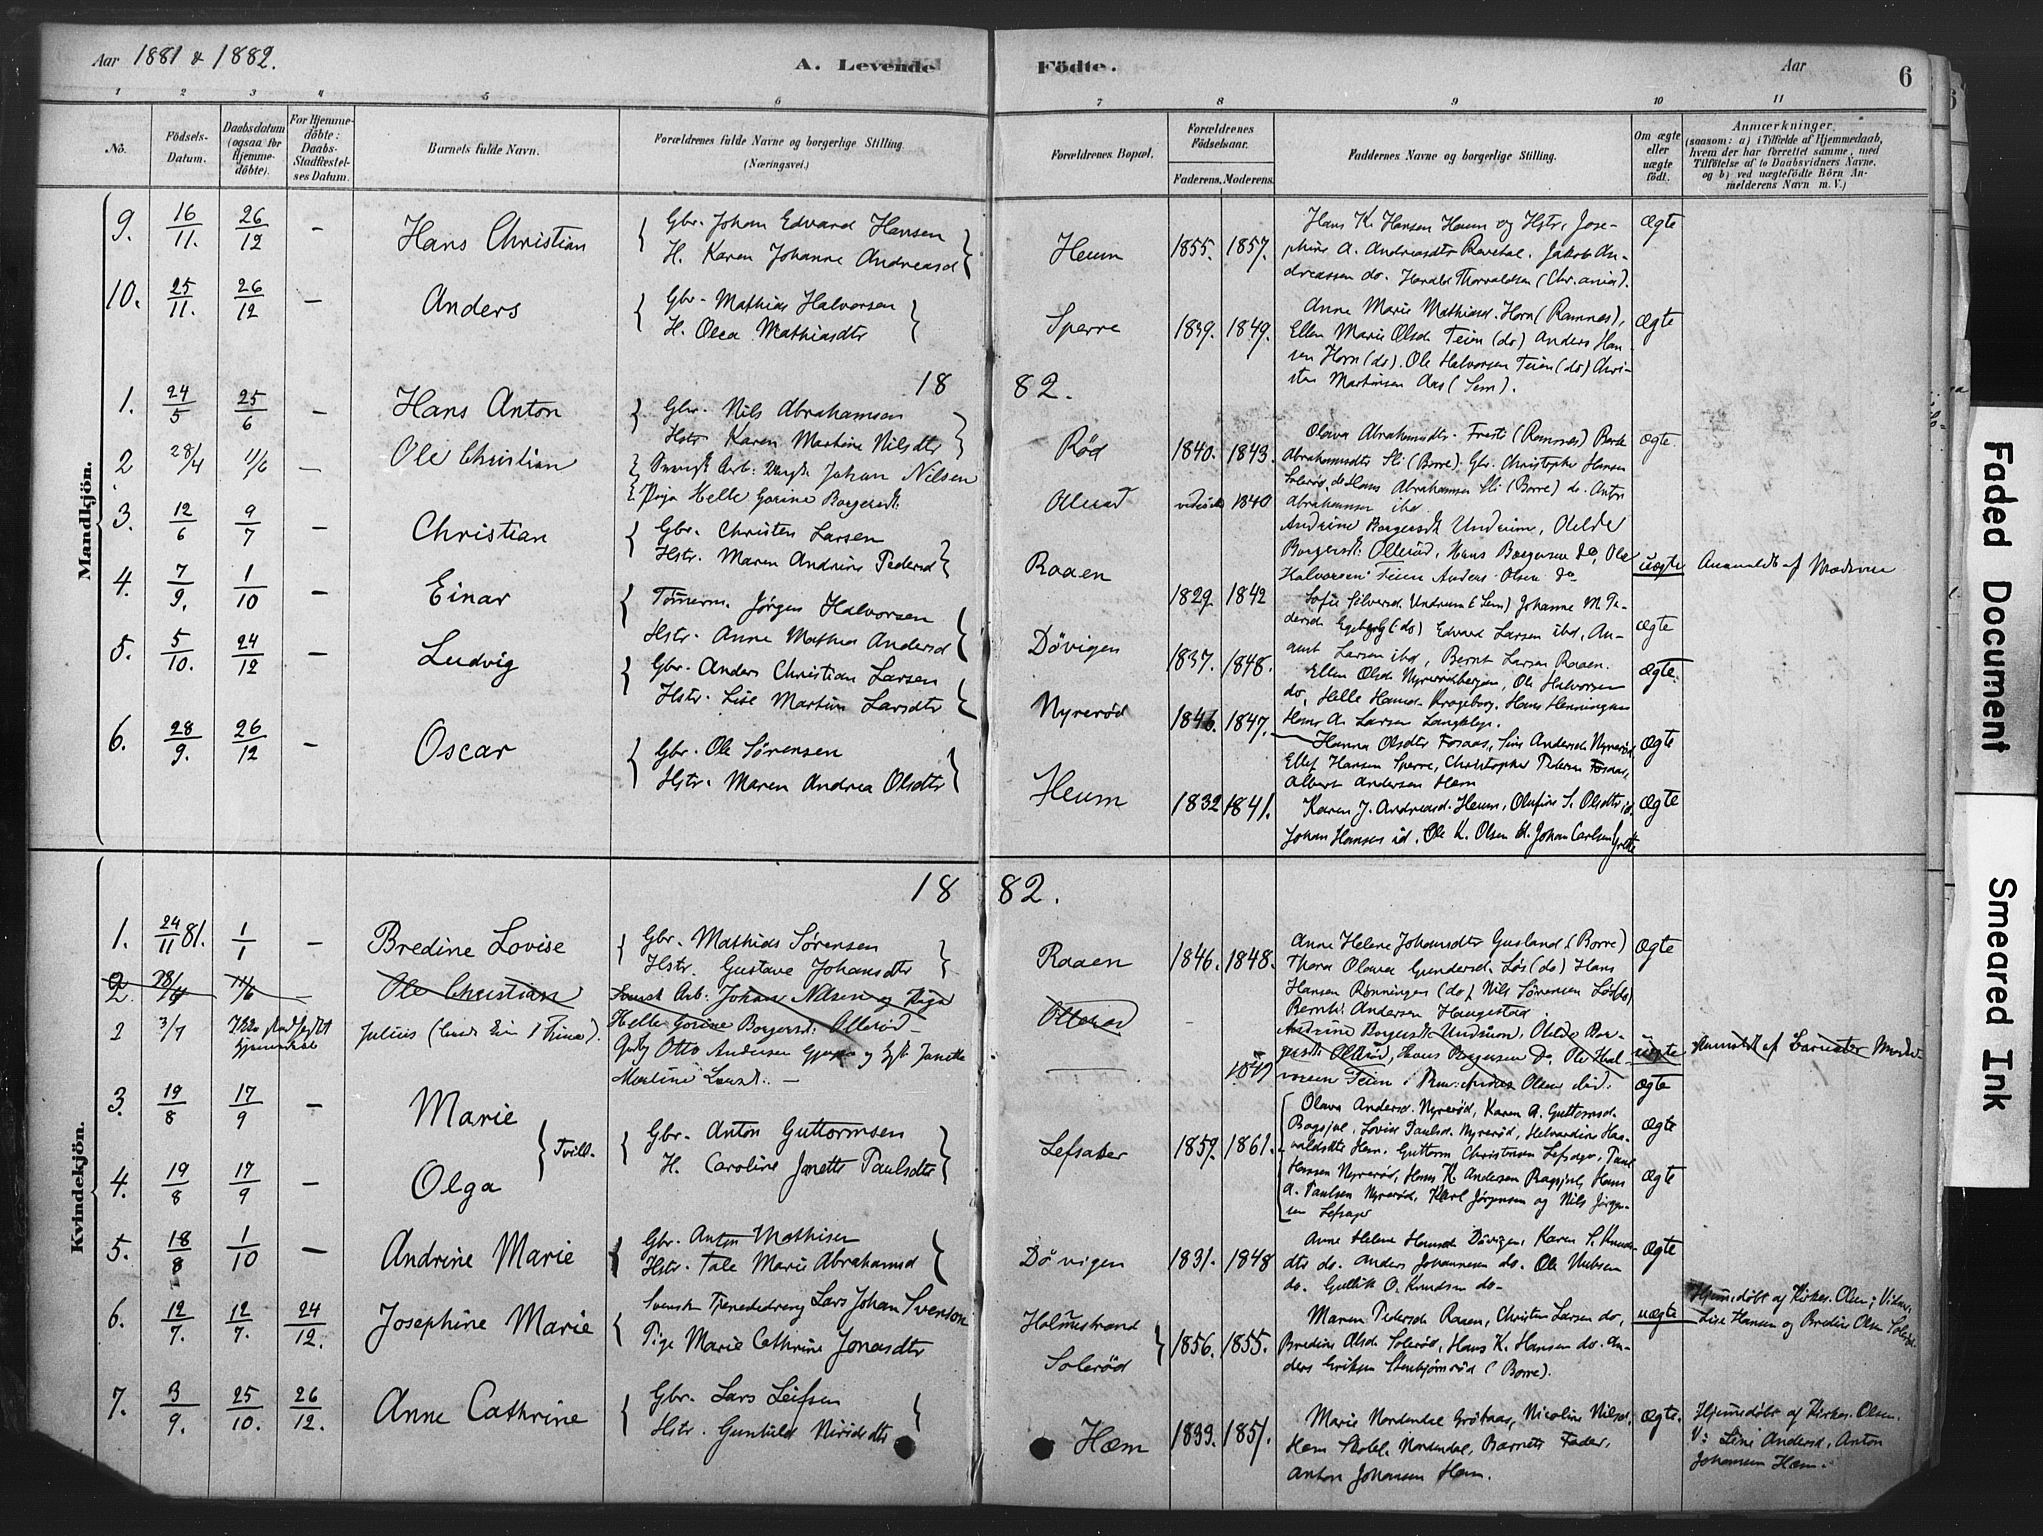 Aar 1881 & 1882.
A. Levende
Födte.
Aar
6
1 2 3 4 5 6 7 8 9 10 11
No.
Födsels-
Datum.
Daabsdatum
(ogsaa for
Hjemme-
döbte).
For Hjemme-
döbte:
Daabs-
Stadfæstel-
ses Datum.
Barnets fulde Navn.
Forældrenes fulde Navne og borgerlige Stilling.
(Næringsvei.)
Forældrenes Bopæl.
Forældrenes
Födselsaar.
Faderens. Moderens.
Faddernes Navne og borgerlige Stilling.
Om ægte
eller
uægte
födt.
Anmærkninger,
(saasom: a) i Tilfælde af Hjemmedaab,
hvem der har forrettet samme, med
Tilföielse af to Daabsvidners Navne,
og b) ved uægtefödte Börn An-
melderens Navn m. V.)
Mandkjön.
9. 16/11. 26/12 – Hans Christian
Gbr. Johan Edvard Hansen
H. Karen Johanne Andreasd
Heum 1855. 1857.
Hans K. Hansen Heum og Hstr. Jose-
phine A. Andreasdtr Ravetal. Jakob An-
dreassen do. Harald Thorvaldsen (Chr.ania).
Ægte
10. 25/11. 26/12 – Anders
Gbr. Mathias Halvorsen
H. Olea Mathiasdtr
Sperre 1839. 1849.
Anne Marie Mathiasd. Horn (Ramnes),
Ellen Marie Olsd. Teien (do) Anders Han-
sen Horn (do). Ole Halvorsen Teien (do) Chri-
sten Martinsen Aas (Sem).
Ægte
18 82.
1. 24/5 25/6 – Hans Anton
Gbr. Nils Abrahamsen
Hstr Karen Martine Nilsdtr
Rød 1840. 1843.
Olava Abrahamsdtr. Freste (Ramnes)
Abrahamsdtr Sli (Borre). Gbr. Christopher Hansen
Solerød, do Hans Abrahamsen Sli (Borre) do. Anton
Abrahamsen ibd.
Ægte
2 28/4 11/6 – Ole Christian
Svensk Arb: Johan Nilsen
Piga Helle Gorine Borgersdt:
1840
Andrine Borgersdt Undrum,
Borgersdt: Ollerød, Hans Borgersen do, Ole
Halvorsen Teien Anders Olsen do
uægte Anmeldt af Moderen
3. 12/6 9/7 – Christian
Gbr. Christen Larsen
Hstr. Maren Andrine Pedersd
Raaen 1829. 1842
Sofie Silversd. Undrum (Sem) Johanne M. Pe-
dersd (do) Edvard Larsen ibd, An-
Larsen ibd, Bernt Larsen Raaen.
Ægte
4. 7/9. 1/10 – Einar
Tømerm. Jörgen Halvorsen
Hstr. Anne Mathea Andersd
Dövigen 1837. 1848.
Ellen Olsd. Ole Halvorsen
do, Helle Hansd. Krogeborg, Hans Henningsen
Hans A. Larsen
Ægte.
5. 5/10. 24/12 – Ludvig
Gbr. Anders Christian Larsen
Hstr. Lise Martine Larsdtr
Nyrerød 1846. 1847.
Hanna Olsdtr Fosaas, Sine Andersd. Nyrerød
Ellef Hansen Sperre, Christopher Pedersen Fosaas,
Albert Andersen Hem
Ægte
6. 28/9. 26/12 – Oscar
Gbr. Ole Sörensen
Hstr. Maren Andrea Olsdtr
Heum 1832 1841.
Karen J. Andreasd. Heum, Olufine S. Olsdtr id.
Johan Hansen id. Ole K. Olsen id. Johan Carlsen
Ægte
Kvindekjön.
18 82.
1. 24/11 81. 1/1 – Bredine Lovise
Gbr. Mathias Sörensen
Hstr. Gustave Johansdtr
Raaen 1846. 1848.
Anne Helene Johansdtr Gusland (Borre)
Thora Olava Gundersd. Løs (do) Hans
Hansen Rønningen (do) Nils Sørensen Løs (do)
Bernt Andersen Haugestad
Ægte
2. 28/4 11/6 – Ole Christian
Svensk Arb: Johan Nilsen og Piga
Helle Gorine Borgersd: Ollerød –
Ollerød –
Andrine Borgersdt Undrum, Bor-
gersdt: Ollerød, Hans Borgersen do, Ole Hal-
vorsen Teien, Anders Olsen ibid:
uægte Anmeldt af Barnets Moder
2 3/7 Julius
Otto Andersen og Janette
Martine Larsd: –
1849
Ægte
3. 19/8 17/9 – Marie
4. 19/8 17/9 – Olga
Tvill.
Gbr. Anton Guttormsen
H. Caroline Janette Paulsdtr
Lefsaker 1859. 1861.
Olava Andersd. Nyrerød, Karen A. Guttormsd.
Bagsjul, Lovise Paulsd. Nyrerød, Helvardine Haa-
valdsdtr Hem, Guttorm Christensen Lefsager, Paul
Hansen Nyrerød, Hans K. Andersen Bagsjul, Hans
A. Paulsen Nyrerød, Karl Jørgensen og Nils Jørgen-
sen Lefsager
Ægte
Ægte
5. 18/8 1/10 – Andrine Marie
Gbr. Anton Mathisen
Hstr. Tale Marie Abrahamsd
Dövigen 1831. 1848
Anne Helene Hansd. Dövigen, Karen S. Knuds-
dtr do. Anders Johannesen do. Ole
do. Gullik O. Knudsen do.
Ægte
6. 12/7. 12/7. 24/12. Josephine Marie
Svensk Tjenestedreng Lars Johan Svenson
Pige Marie Cathrine Jonasdtr
Holmestrand
Solerød
1856. 1855.
Maren Pedersd. Raaen, Christen Larsen do,
Bredine Olsd. Solerød, Hans K. Hansen do. An-
ders Eriksen Stenbjørnrød (Borre).
uægte
Hjemmedøbt af Kirkes. Olsen; Vidner.
Lise Hansen og Bredine Olsen Solerød.
7. 3/9. 25/10. 26/12. Anne Cathrine
Gbr. Lars Leifsen
Hstr. Gunhild
Hæm 1833. 1851.
Marie Nordendal Grötaas, Nicoline Nilsd.
Hem Nordendal, Barnets Fader,
Anton Johansen Hem.
Ægte.
Hjemmedøbt af Kirkes. Olsen.
V: Line Andersd. Anton
Johansen Hæm.
Faded Document
Smeared Ink